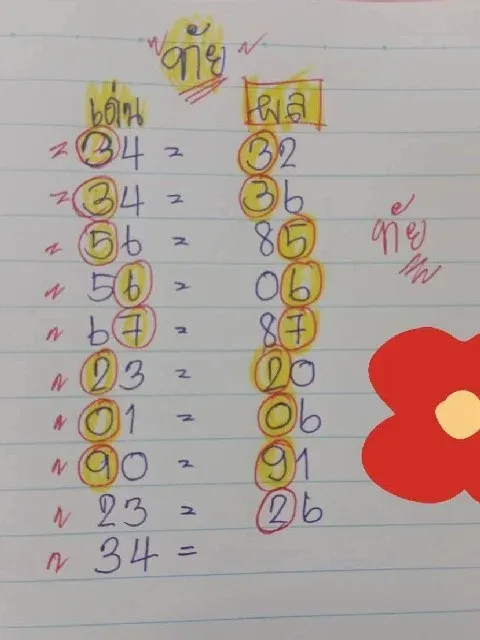 " ทัย "
เด่น ผล
" 34 = 32
" 34 = 36
" 56 = 85
" 56 = 06
" 67 = 87
" 23 = 20
" 01 = 06
" 90 = 91
" 23 = 26
" 34 =
ทัย